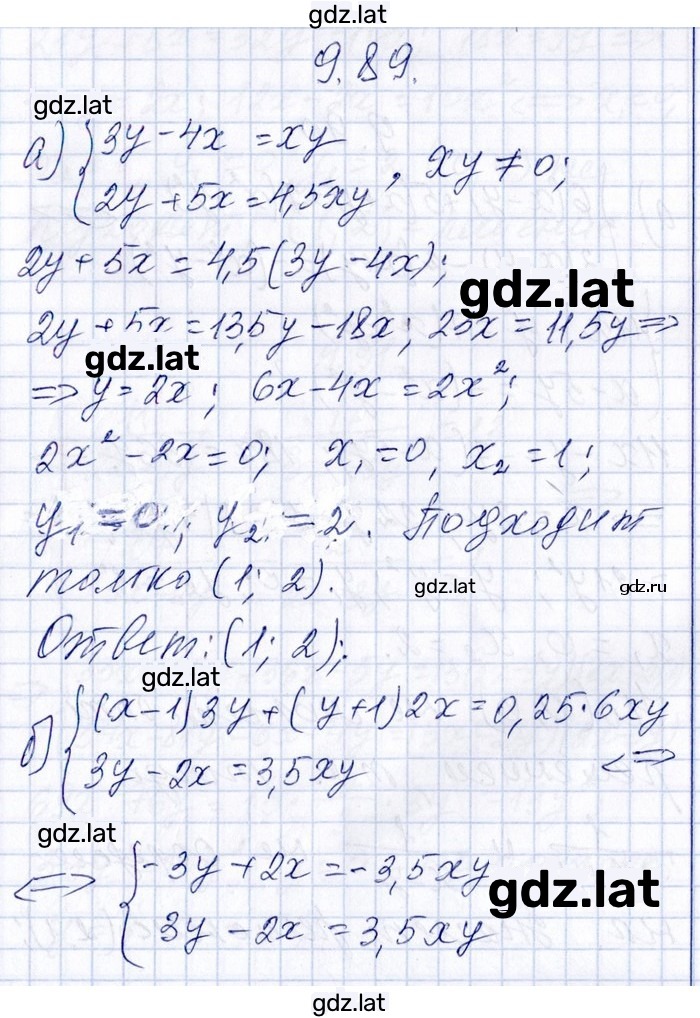 gdz.lat
9.89.
gdz.lat
а) { 3y - 4x = xy
2y + 5x = 4,5xy , xy ≠ 0;
2y + 5x = 4,5(3y - 4x);
gdz.lat
2y + 5x = 13,5y - 18x; 23x = 11,5y =>
gdz.lat
=> y = 2x; 6x - 4x = 2x²;
2x² - 2x = 0; x₁ = 0, x₂ = 1;
y₁ = 0; y₂ = 2. Подходит
только (1; 2).
gdz.lat gdz.ru
Ответ: (1; 2);
gdz.lat
б) { (x-1)3y + (y+1)2x = 0,25·6xy
3y - 2x = 3,5xy <=>
gdz.lat
<=> { -3y + 2x = -3,5xy
gdz.lat
3y - 2x = 3,5xy
gdz.lat